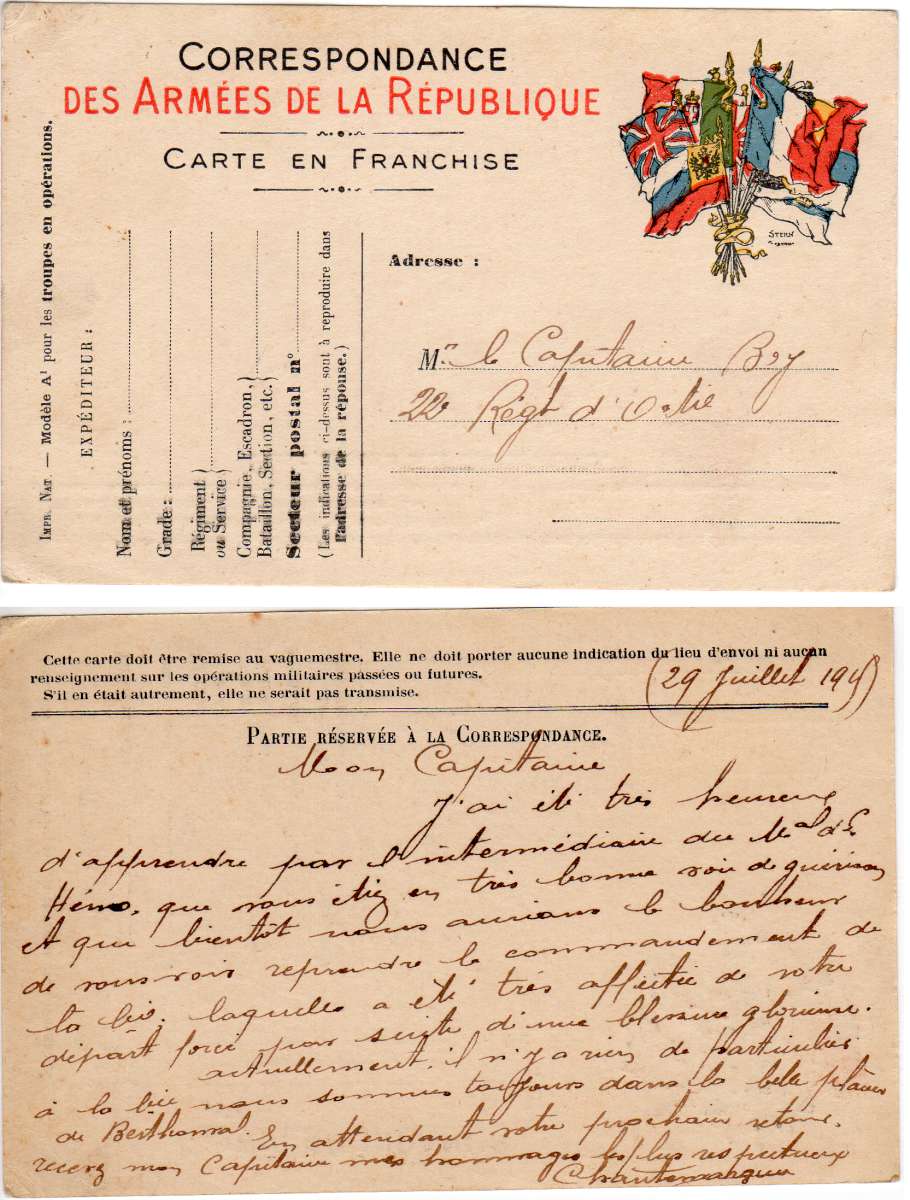 CORRESPONDANCE
DES ARMÉES DE LA RÉPUBLIQUE
CARTE EN FRANCHISE
IMPR. NAT. — Modèle A¹ pour les troupes en opérations.
EXPÉDITEUR :
Nom et prénoms :
Grade :
Régiment
ou Service
Compagnie, Escadron,
Bataillon, Section, etc.
Secteur postal n°
(Les indications ci-dessus sont à reproduire dans
l'adresse de la réponse.)
STERN
Adresse :
Mr le Capitaine Bry
22e Régt d'
Cette carte doit être remise au vaguemestre. Elle ne doit porter aucune indication du lieu d'envoi ni aucun
renseignement sur les opérations militaires passées ou futures.
S'il en était autrement, elle ne serait pas transmise.
(29 Juillet 1915)
PARTIE RÉSERVÉE À LA CORRESPONDANCE.
Mon Capitaine
J'ai été très heureux
d'apprendre par l'intermédiaire du Mal de
que vous étiez en très bonne voie de guérison
et que bientôt nous aurions le bonheur
de vous voir reprendre le commandement de
la laquelle a été très affectée de votre
départ forcé par suite d'une blessure glorieuse.
actuellement, il n'y a rien de particulier
à la nous sommes toujours dans la belle plaine
de Berthonval. En attendant votre prochain retour,
recevez mon Capitaine mes hommages les plus respectueux